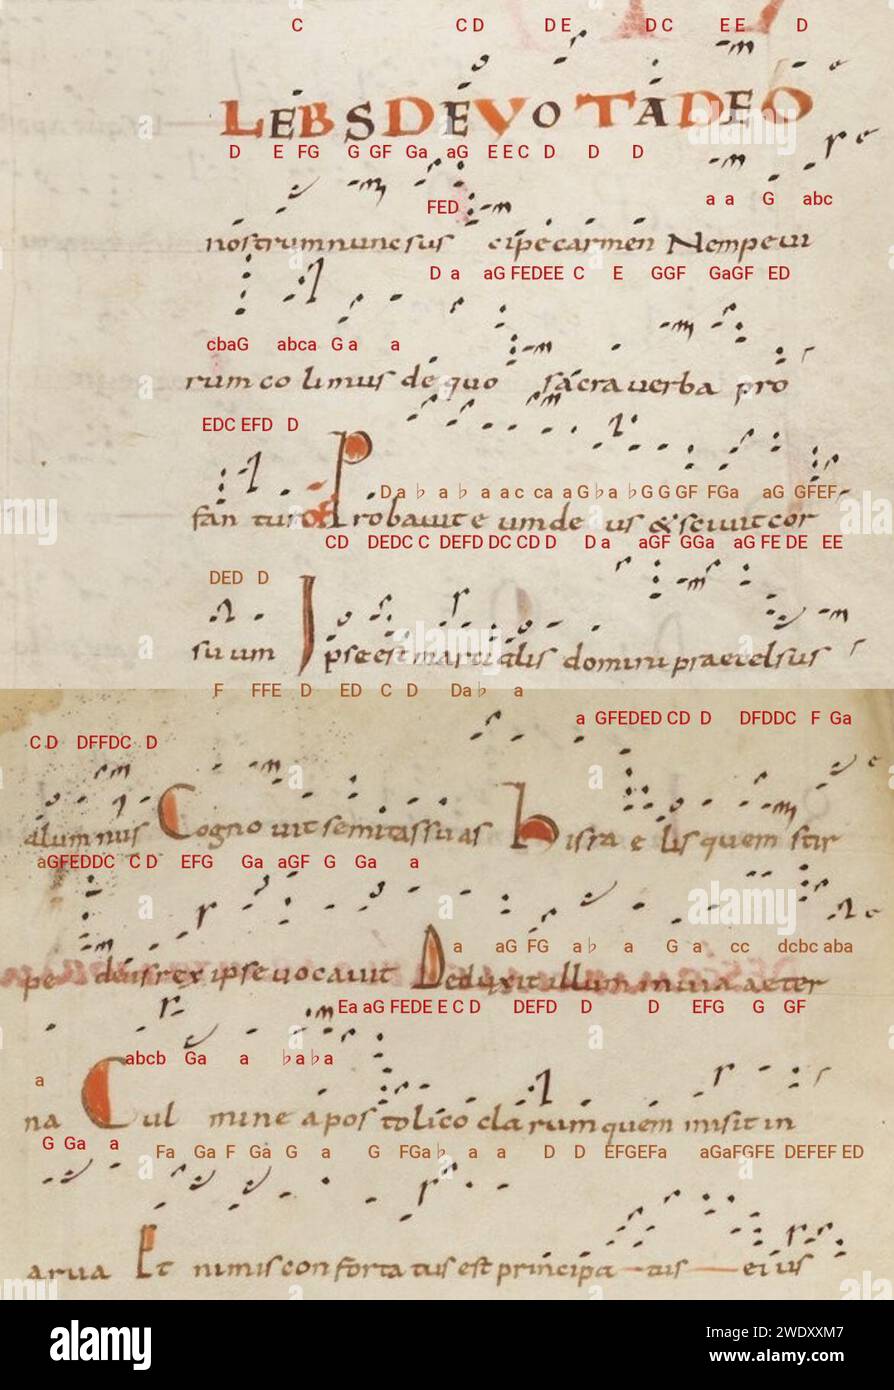 C CD DE DC EE D
LEBS DEVOTA DEO
D E FG G GF Ga aG EEC D D D
FED a a G abc
nostrum nunc sus cipe carmen Nempe vi
D a aG FEDEE C E GGF GaGF ED
cbaG abca Ga a
rum co limus de quo sacra verba pro
EDC EFD D
D a ♭ a ♭ a ac ca aG ♭a ♭G G GF FGa aG GFEF
fan tur Probavit eum de us & scivit cor
CD DEDC C DEFD DC CD D D a aGF GGa aG FE DE EE
DED D
su um Ipse est marcialis domini praecelsus
F FFE D ED C D Da ♭ a
a GFEDED CD D DFDDC F Ga
CD DFFDC D
alumnus Cognovit semitas suas hisra e lis quem stir
aGFEDDC CD EFG Ga aGF G Ga a
a aG FG a ♭ a G a cc dcbc aba
pe deus rex ipse vocavit Deduxit illum in via aeter
Ea aG FEDE E C D DEFD D D EFG G GF
abcb Ga a ♭a ♭a
a
na Cul mine apos tolico clarum quem misit in
G Ga a
Fa Ga F Ga G a G FGa ♭ a a D D EFGEFa aGaFGFE DEFEF ED
arva Et nimis confortatus est principa tus eius
alamy
Image ID: 2WDXXM7
www.alamy.com